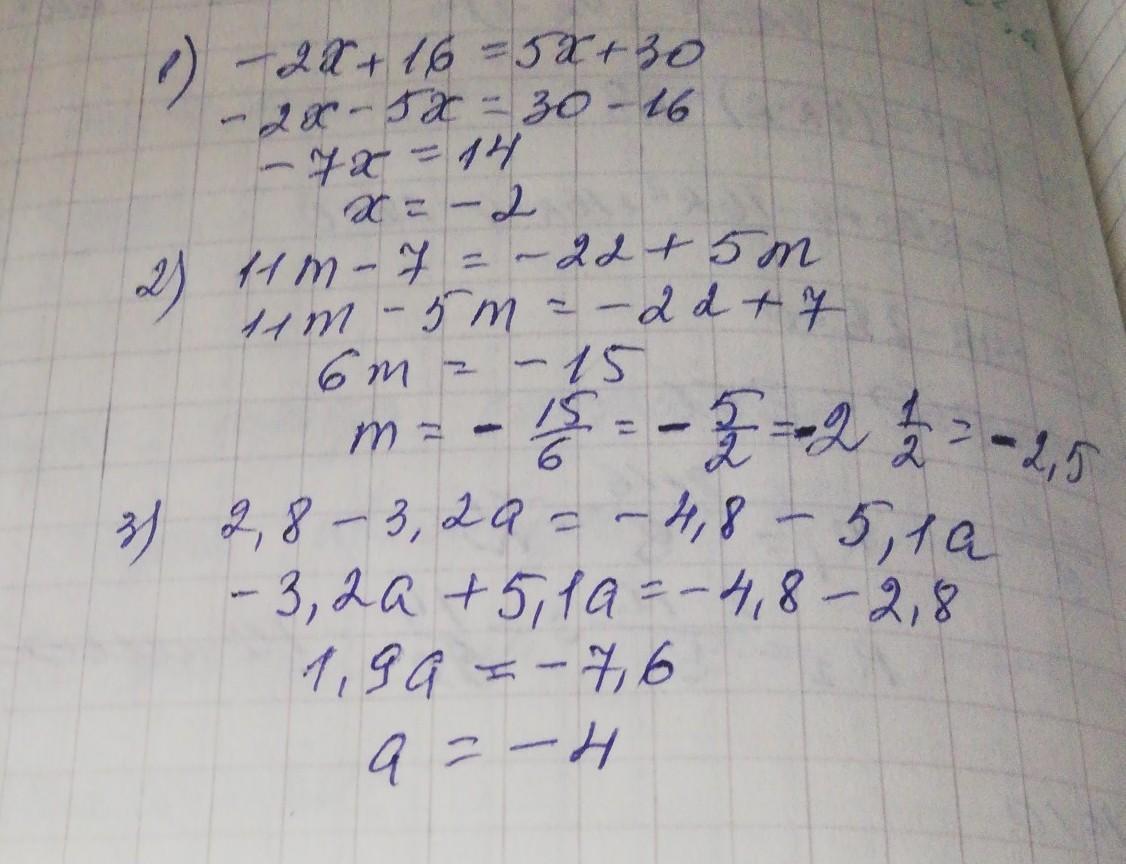 1) -2x + 16 = 5x + 30
-2x - 5x = 30 - 16
-7x = 14
x = -2
2) 11m - 7 = -22 + 5m
11m - 5m = -22 + 7
6m = -15
m = - 15/6 = - 5/2 = -2 1/2 = -2,5
3) 2,8 - 3,2a = -4,8 - 5,1a
-3,2a + 5,1a = -4,8 - 2,8
1,9a = -7,6
a = -4